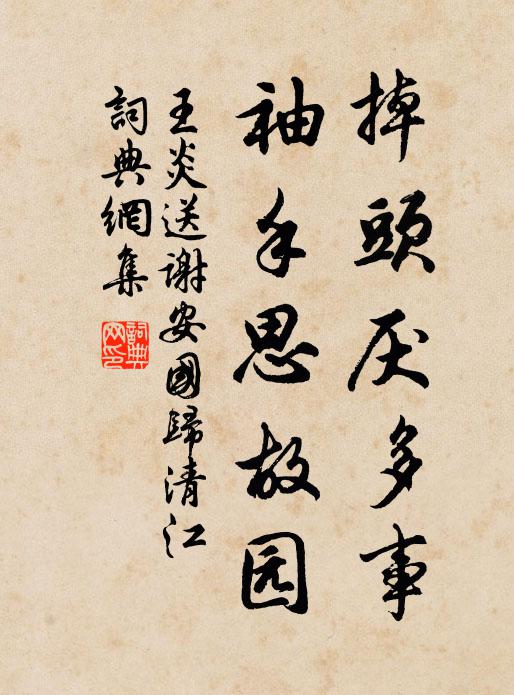 掉頭厌多事
袖手思故园
王炎送谢安國歸清江
詞典網集
詞典網印